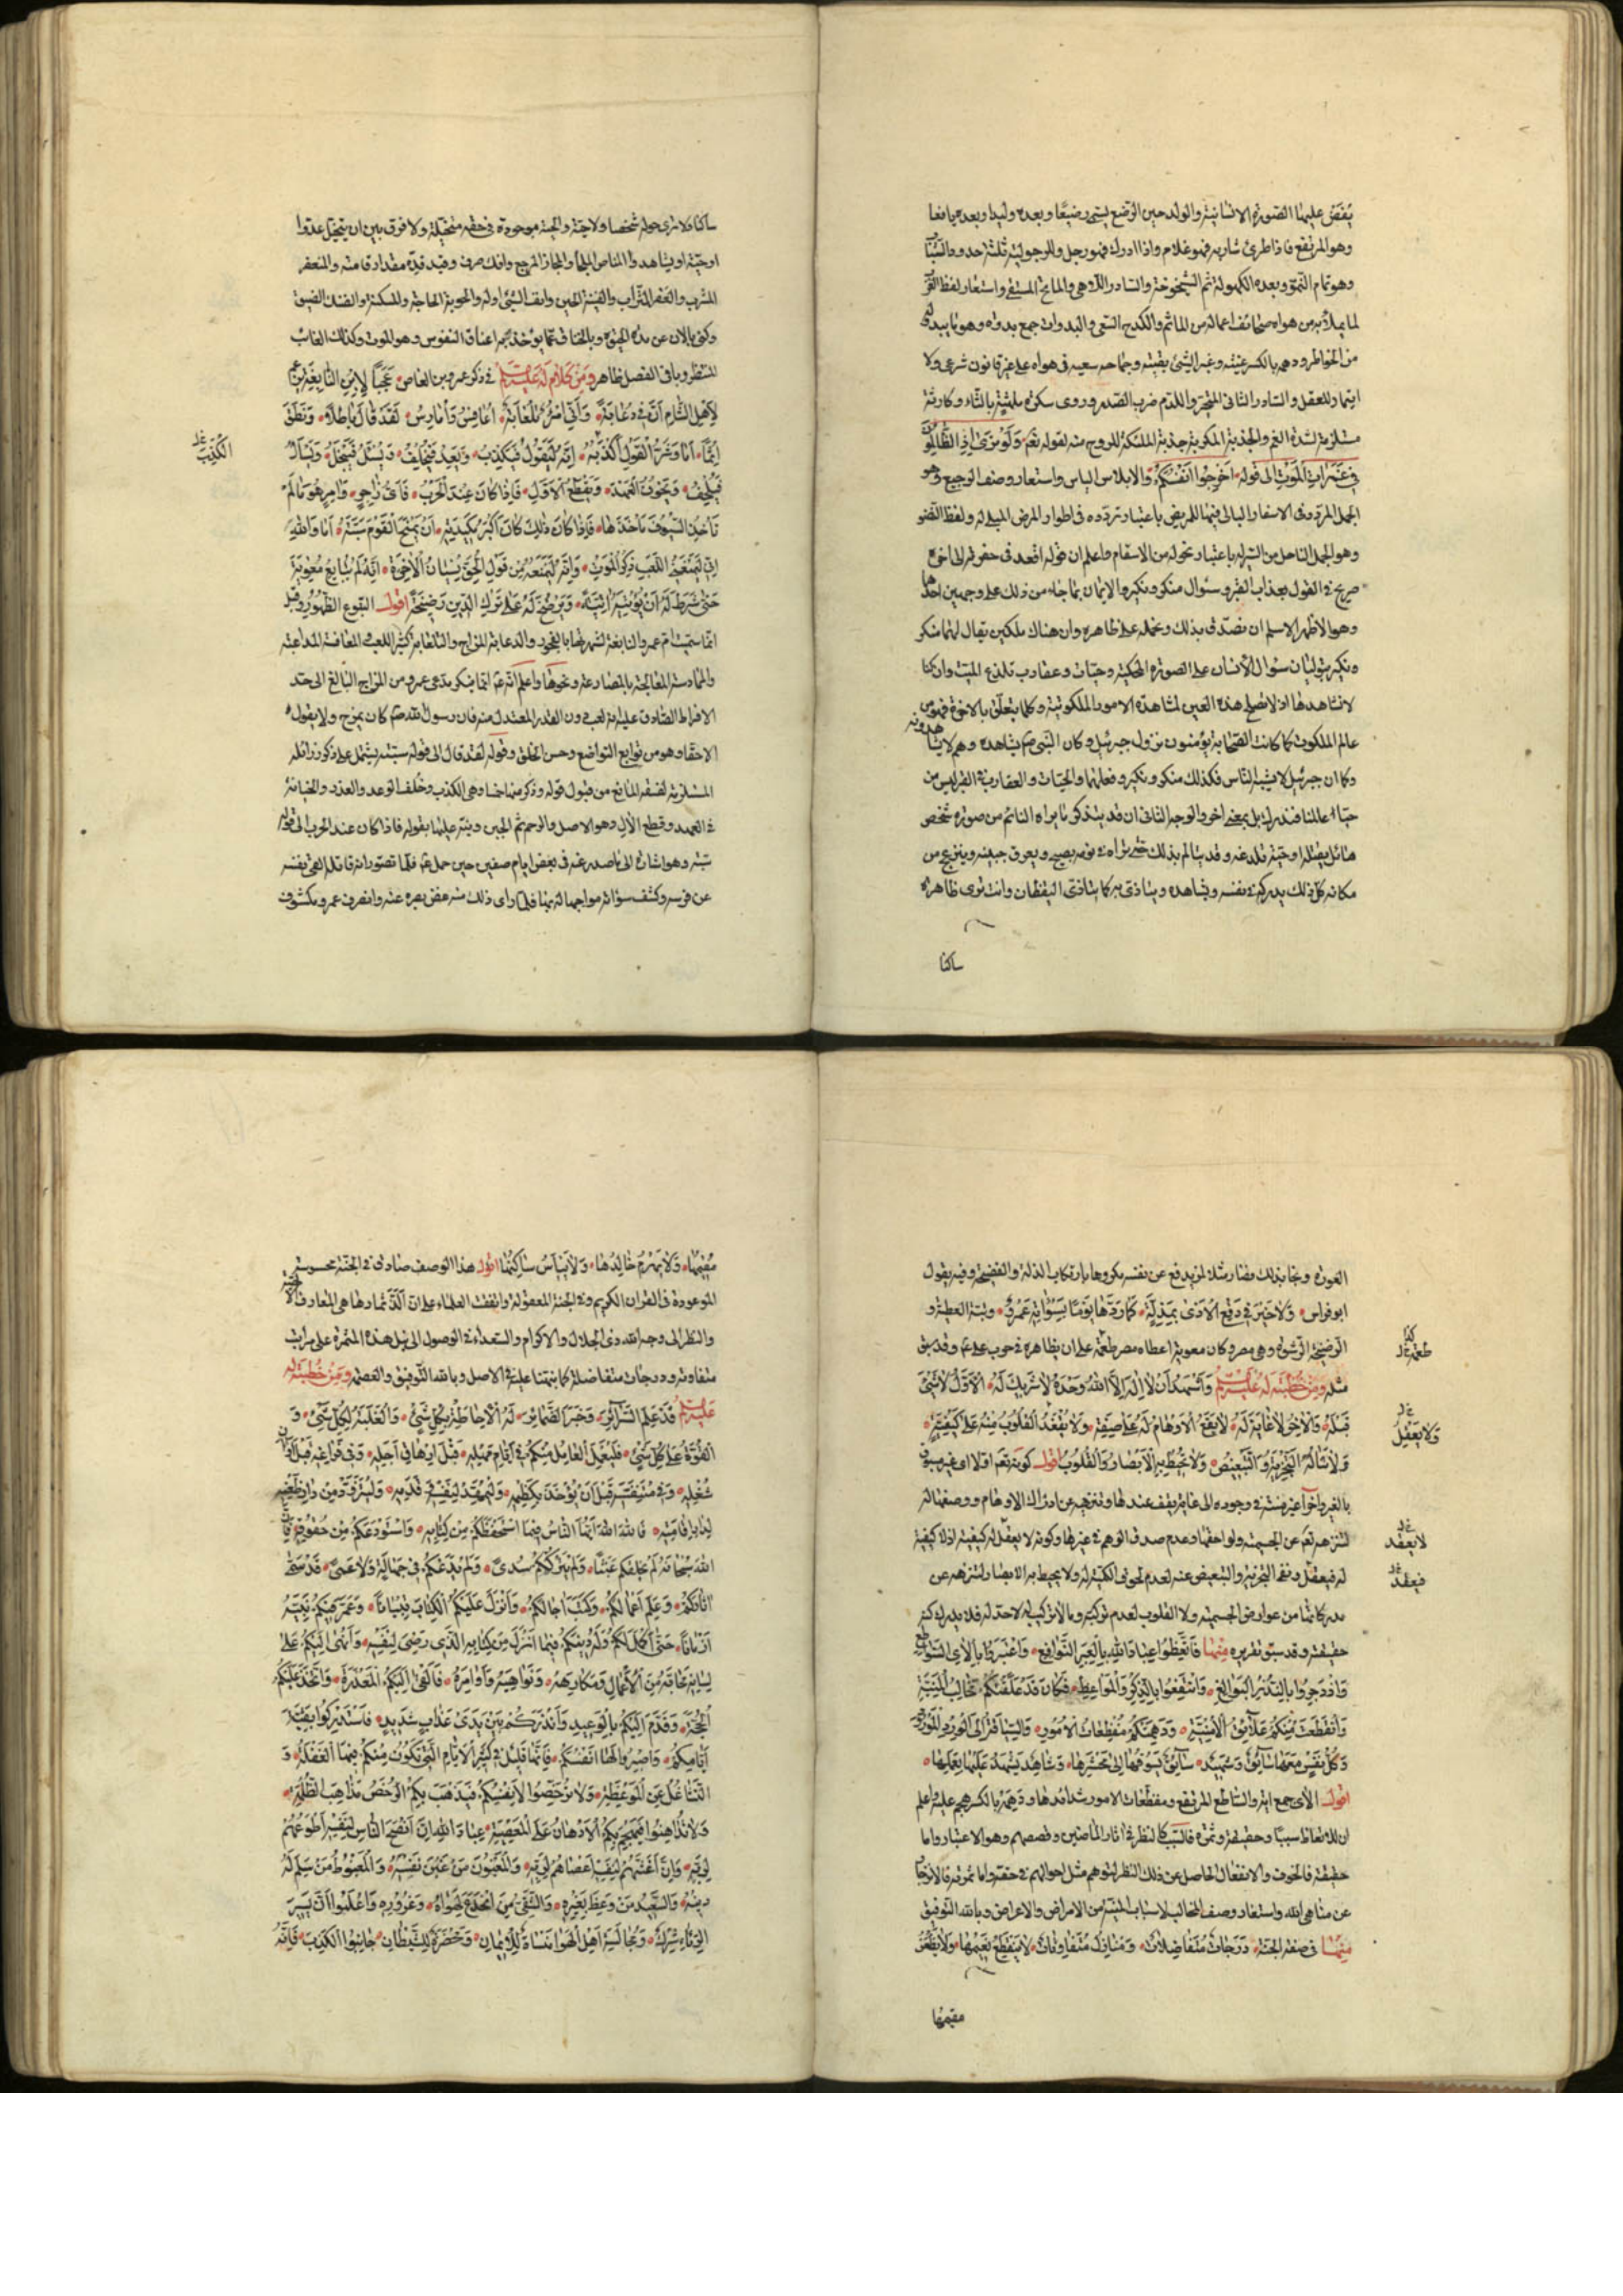 يفض عليها الصورة الانسانية والولد حين الوضع يسمى رضيعا وبعده وليدا وبعده يافعا
وهو المرتفع فاذا طرئ شاربه فهو غلام واذا ادرك فهو رجل وللرجولية ثلثة حدود الشباب
وهو تمام النمو وبعده الكهولة ثم الشيخوخة والسادر اللاهي والماتح المستقى واستعار لفظ الغرب
لما يملأ به من هواه صحائف اعماله من المآثم والكدح السعى والبدوات جمع بدوة وهو ما يبدو له
من الخواطر ودهمه بالكسر غشيه وغبر الشئ بقيته وجماحه سعيه في هواه على غير قانون شرعى ولا
المتجر واللدم ضرب الصدر وروى سكرة ملهثة بالثاء وكارثة
الغم والجذبة المكربة جذبة الملئكة للروح منه لقوله تعم ولو ترى اذ الظالمون
في غمرات الموت الى قوله اخرجوا انفسكم والابلاس الياس واستعار وصف الرجيع وهو
الجمل المردد في الاسفار البالى فيها للمريض باعتبار تردده في اطوار المرض المبلى له ولفظ النضو
وهو الجمل الناحل من السير له باعتبار نحوله من الاسقام واعلم ان قوله اقعد في حفرته الى اخره
صريح في القول بعذاب القبر وسؤال منكر ونكير والايمان بما جاء من ذلك على وجهين احدهما
وهو الاظهر الاسلم ان تصدق بذلك وتحمله على ظاهره وان هناك ملكين يقال لهما منكر
ونكير يتوليان سؤال الانسان على الصورة المحكية وحيات وعقارب تلدغ الميت وان كنا
لا نشاهدها اذ لا تصلح هذه العين لمشاهدة الامور الملكوتية وكلما يتعلق بالاخرة فهو من
عالم الملكوت كما كانت الصحابة يؤمنون بنزول جبرئيل وكان النبي صم يشاهده وهم لا يشاهدونه
وكما ان جبرئيل لا يشبه الناس فكذلك منكر ونكير وفعلهما والحيات والعقارب في القبر ليس من
حيات عالمنا فتدرك بل بمعنى اخر والوجه الثانى ان قد يتذكر ما يراه النائم من صورة شخص
هائل يضربه او حية تلدغه وقد يتالم بذلك حتى تراه في نومه يصيح ويعرق جبينه وينزعج من
مكانه كل ذلك يدركه في نفسه ويشاهده ويتاذى به كما يتاذى اليقظان وانت ترى ظاهره
ساكنا
ساكنا ولا ترى حوله شخصا ولا حية والحية موجودة في حقه متخيلة ولا فرق بين ان يتخيل عدوا
او حية او يشاهد والمناص الملجأ والمجاز المرجع وافك صرف وقيد قده مقدار قامته والمنعفر
المترب والعفر التراب والفينة الحين وانف الشئ اوله والحوبة الحاجة والمسكنة والضنك الضيق
وهو الموت وكذلك الغائب
المنتظر وباقى الفصل ظاهر ومن كلام له عليه السلم في ذكر عمرو بن العاص عجبا لابن النابغة يزعم
لاهل الشام ان في دعابة وانى امرؤ تلعابة اعافس وامارس لقد قال باطلا ونطق
اثما اما وشر القول اكذبه انه ليقول فيكذب ويعد فيخلف ويسئل فيبخل ويسأل
الكذب
فيلحف ويخون العهد ويقطع الال فاذا كان عند الحرب فاى زاجر وآمر هو ما لم
تأخذ السيوف مآخذها فاذا كان ذلك كان اكبر مكيدته ان يمنح القوم سبته اما والله
انى ليمنعنى اللعب ذكر الموت وانه ليمنعه من قول الحق نسيان الآخرة انه لم يبايع معوية
حتى شرط له ان يؤتيه اتية ويرضخ له على ترك الدين رضيخة اقول النبوغ الظهور وقيل
انما سميت ام عمرو النابغة لشهرتها بالفجور والدعابة المزاح والتلعابة كثير اللعب والمعافسة المداعبة
والممارسة المعالجة بالمصارعة ونحوها واعلم انه عم انما ينكر مدعى عمرو من المزاح البالغ الى حد
الافراط الصادق عليه انه لعب دون القدر المعتدل منه فان رسول الله صم كان يمزح ولا يقول
الا حقا وهو من توابع التواضع وحسن الخلق وقوله لقد قال الى قوله سبته يشتمل على ذكر رذائله
المستلزمة لفسقه المانع من قبول قوله وذكر منها خمسا وهى الكذب وخلف الوعد والغدر والخيانة
في العهد وقطع الال وهو الاصل والرحم ثم الجبن ونبه عليها بقوله فاذا كان عند الحرب الى قوله
سبته وهو اشارة الى ما صدر عنه في بعض ايام صفين حين حمل عم فلما تصور انه قاتله القى نفسه
عن فرسه وكشف سوأته مواجها له بها فلما راى ذلك منه غض بصره عنه وانصرف عمرو مكشوف
العورة ونجا بذلك فصار مثلا لمن يدفع عن نفسه مكروها بارتكاب المذلة والفضيحة وفيه يقول
ابو فراس ولا خير في دفع الاذى بمذلة كما ردها يوما بسوأته عمرو وتبة العطية و
الرضيخة الرشوة وهى مصر وكان معوية اعطاه مصر طعمة على ان يظاهره في حرب على عم وقد سبق
طعمة
مثله ومن خطبة له عليه السلم واشهد ان لا اله الا الله وحده لا شريك له الاول لا شئ
قبله والآخر لا غاية له لا تقع الاوهام له على صفة ولا تعقد القلوب منه على كيفية
ولا يعقل
ولا تناله التجزية والتبعيض ولا تحيط به الابصار والقلوب اقول كونه تعم اولا اى غير مسبوق
بالغير واخرا غير منته في وجوده الى غاية يقف عندها وتنزيهه عن ادراك الاوهام ووصفها له
لتنزهه تعم عن الجسمية ولواحقها وعدم صدق الوهم في غيرها وكونه لا يعقل له كيفية اذ لا كيفية
لا يعقد
له فيعقل ونفى التجزية والتبعيض عنه لعدم لحوق الكمية له ولا يحيط به الابصار لتنزهه عن
فيعقد
مدركاتها من عوارض الجسمية ولا القلوب لعدم تركيبه وما لا تركيب له لا حد له فلا يدرك كنه
حقيقته وقد سبق تقريره منها فاتعظوا عباد الله بالعبر النوافع واعتبروا بالاى السواطع
وازدجروا بالنذر البوالغ وانتفعوا بالذكر والمواعظ فكان قد علقتكم مخالب المنية
وانقطعت منكم علائق الامنية ودهمتكم مفظعات الامور والسياقة الى الورد المورود
وكل نفس معها سائق وشهيد سائق يسوقها الى محشرها وشاهد يشهد عليها بعملها
اقول الآى جمع اية والساطع المرتفع ومفظعات الامور شدائدها ودهمه بالكسر هجم عليه واعلم
ان للاتعاظ سببا وحقيقة وثمرة فالسبب كالنظر في اثار الماضين وقصصهم وهو الاعتبار واما
حقيقته فالخوف والانفعال الحاصل عن ذلك النظر لتوهم مثل احوالهم في حقه واما ثمرته فالانزجار
عن مناهى الله واستعار وصف المخالب لاسباب المنية من الامراض والاعراض وبالله التوفيق
منها في صفة الجنة درجات متفاضلات ومنازل متفاوتات لا ينقطع نعيمها ولا يظعن
مقيمها
مقيمها ولا يهرم خالدها ولا يبأس ساكنها اقول هذا الوصف صادق في الجنة المحسوسة
الموعودة في القران الكريم وفي الجنة المعقولة واتفقت العلماء على ان الذ ثمارها هى المعارف الالهية
والنظر الى وجه الله ذى الجلال والاكرام والسعداء في الوصول الى نيل هذه الثمرة على مراتب
متفاوتة ودرجات متفاضلة كما نبهنا عليه في الاصل وبالله التوفيق والعصمة ومن خطبة له
عليه السلم قد علم السرائر وخبر الضمائر له الاحاطة بكل شئ والغلبة لكل شئ و
القوة على كل شئ فليعمل العامل منكم في ايام مهله قبل ارهاق اجله وفي فراغه قبل اوان
شغله وفي متنفسه قبل ان يؤخذ بكظمه وليمهد لنفسه وقدمه وليتزود من دار ظعنه
لدار اقامته فالله الله ايها الناس فيما استحفظكم من كتابه واستودعكم من حقوقه فان
الله سبحانه لم يخلقكم عبثا ولم يترككم سدى ولم يدعكم في جهالة ولا عمى قد سمى
آثاركم وعلم اعمالكم وكتب آجالكم وانزل عليكم الكتاب تبيانا وعمر فيكم نبيه
ازمانا حتى اكمل لكم وله دينكم فيما انزل من كتابه الذى رضى لنفسه وانهى اليكم على
لسانه محابه من الاعمال ومكارهه ونواهيه واوامره فالقى اليكم المعذرة واتخذ عليكم
الحجة وقدم اليكم بالوعيد وانذركم بين يدى عذاب شديد فاستدركوا بقية
ايامكم واصبروا لها انفسكم فانها قليل في كثير الايام التى تكون منكم فيها الغفلة و
التشاغل عن الموعظة ولا ترخصوا لانفسكم فتذهب بكم الرخص مذاهب الظلمة
ولا تداهنوا فيهجم بكم الادهان على المعصية عباد الله ان انصح الناس لنفسه اطوعهم
لربه وان اغشهم لنفسه اعصاهم لربه والمغبون من غبن نفسه والمغبوط من سلم له
دينه والسعيد من وعظ بغيره والشقى من انخدع لهواه وغروره واعلموا ان يسير
الرياء شرك ومجالسة اهل الهوى منساة للايمان ومحضرة للشيطان جانبوا الكذب فانه